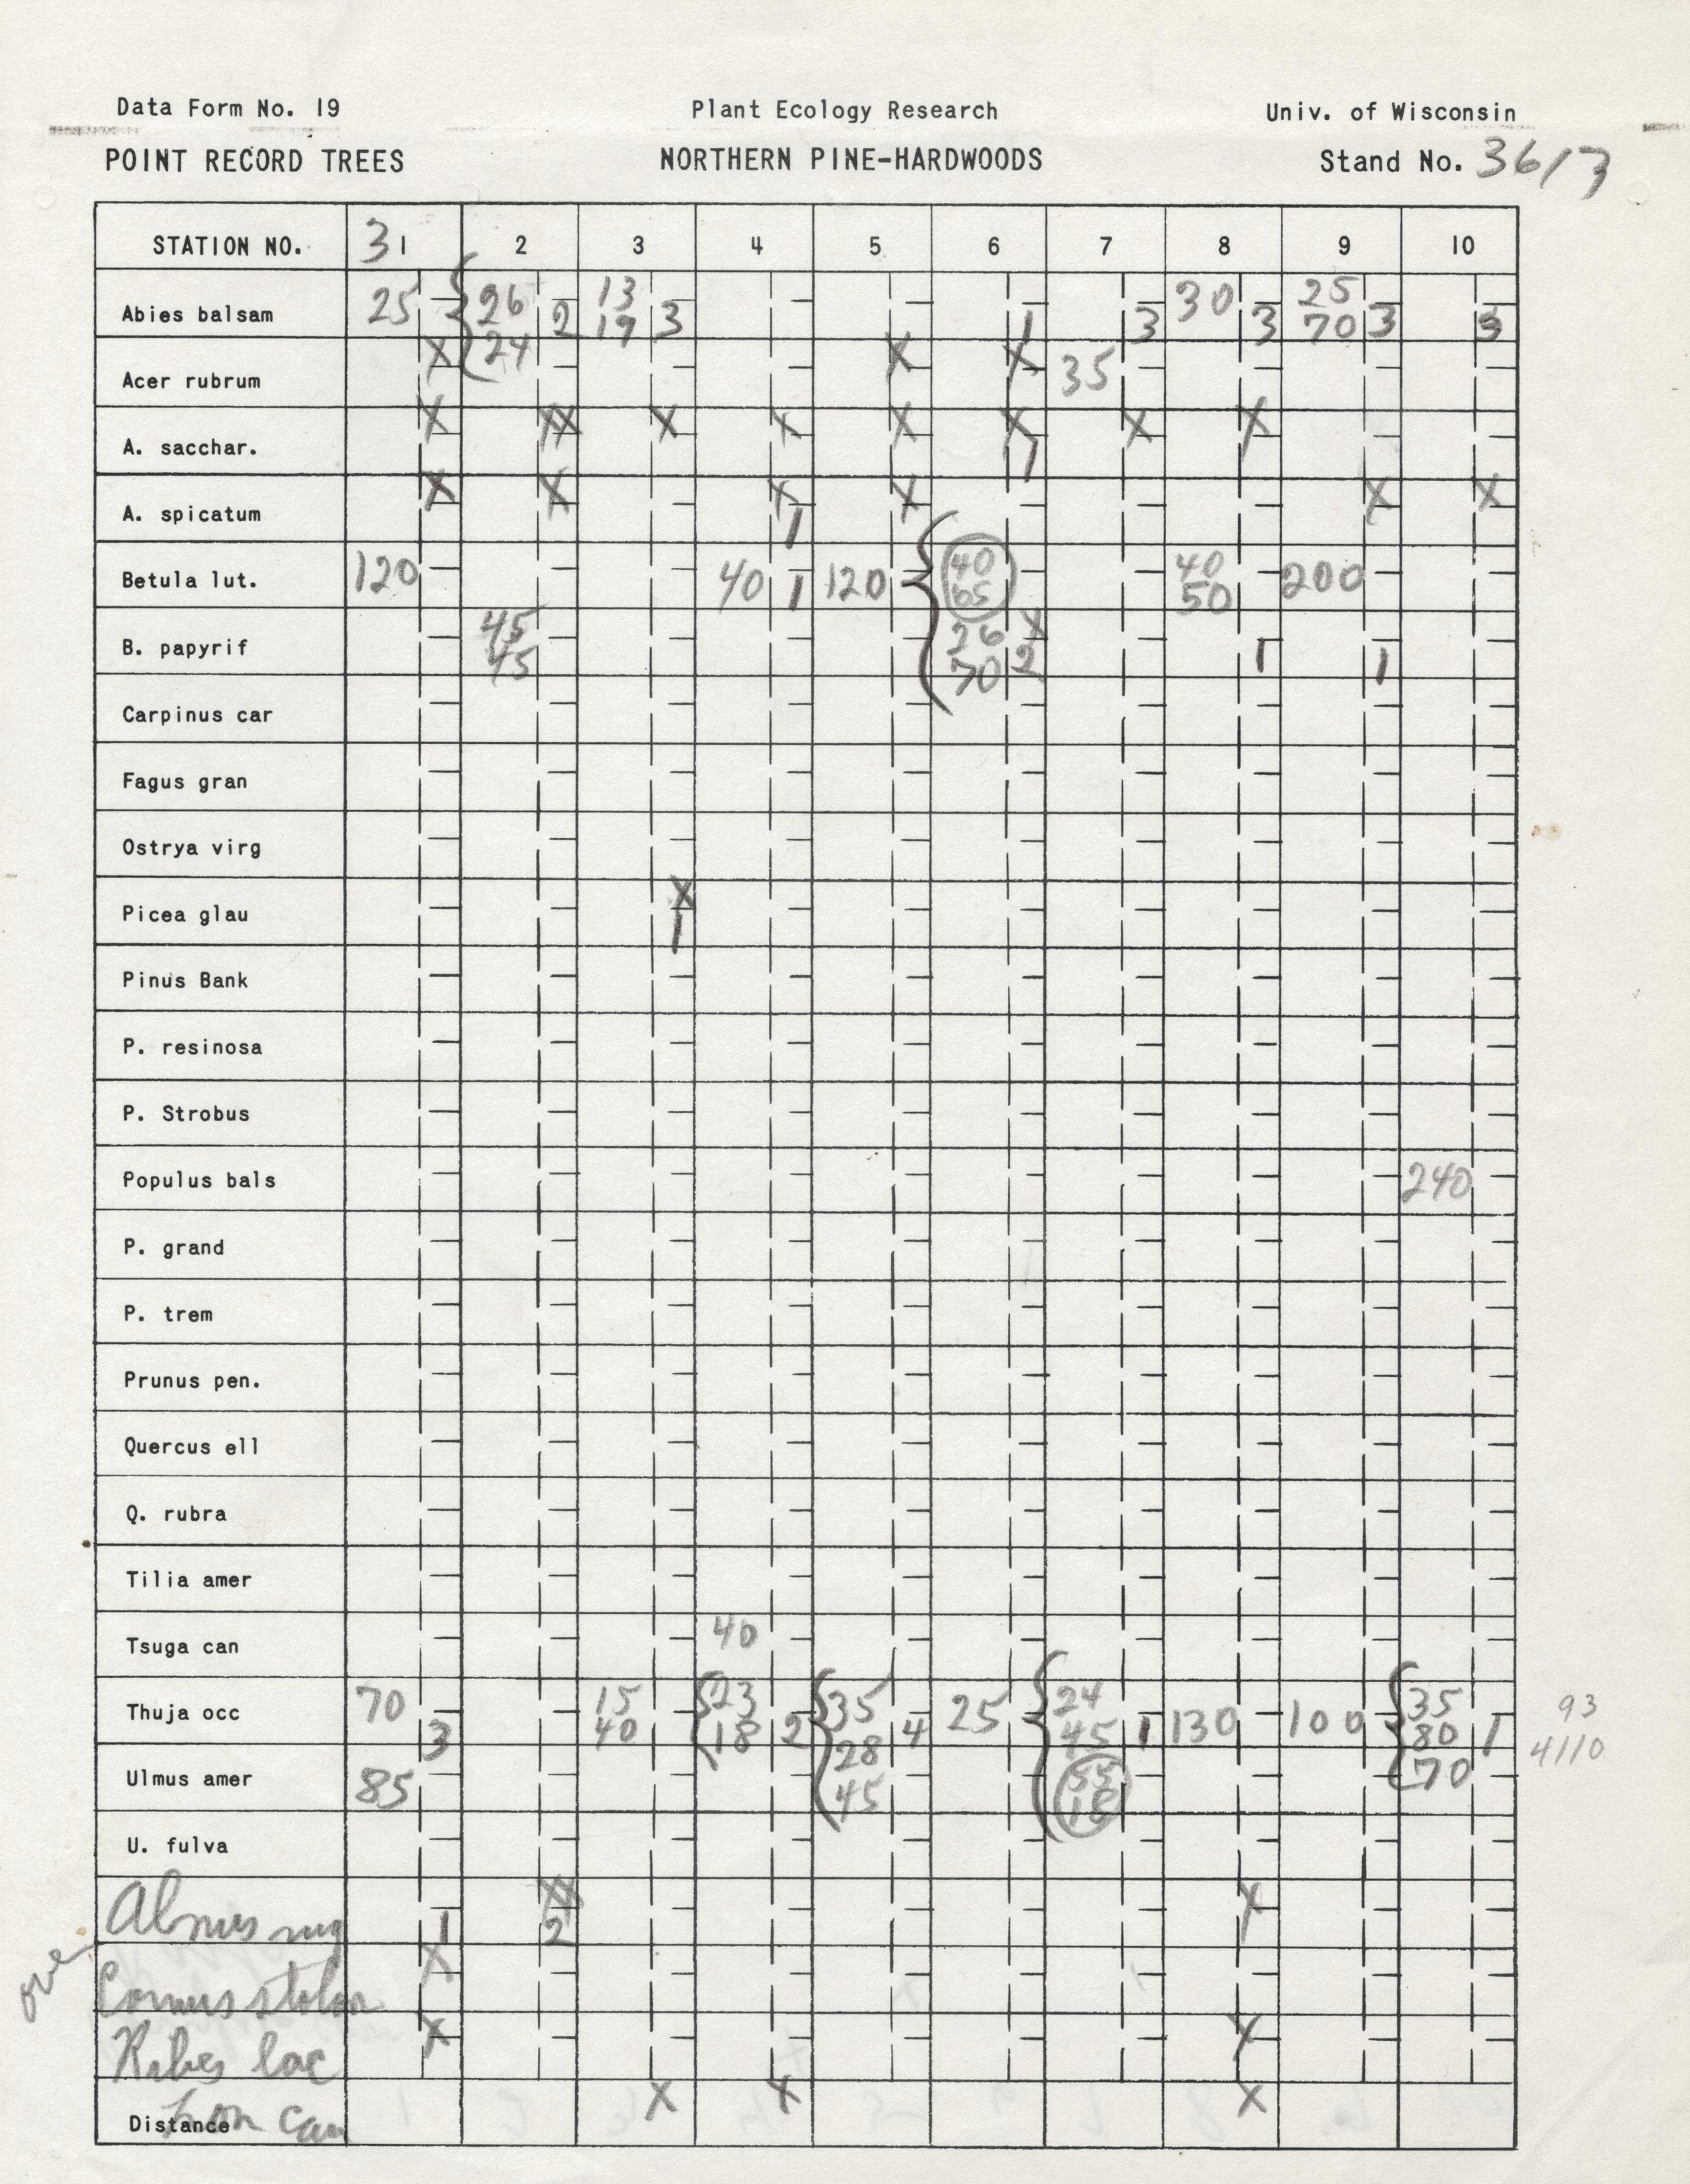 Data Form No. 19 Plant Ecology Research Univ. of Wisconsin
POINT RECORD TREES NORTHERN PINE-HARDWOODS Stand No. 3613
STATION NO. 31 2 3 4 5 6 7 8 9 10
Abies balsam 25 26 24 2 13 19 3 1 3 30 3 25 70 3 3
Acer rubrum X X X 35
A. sacchar. X XX X X X X 1 X X
A. spicatum X X X 1 X X X
Betula lut. 120 40 1 120 40 65 40 50 200
B. papyrif 45 45 26 70 X 2 1 1
Carpinus car
Fagus gran
Ostrya virg
Picea glau X 1
Pinus Bank
P. resinosa
P. Strobus
Populus bals 240
P. grand
P. trem
Prunus pen.
Quercus ell
Q. rubra
Tilia amer
Tsuga can 40
Thuja occ 70 3 15 40 23 18 2 35 28 45 4 25 24 45 55 18 1 130 100 35 80 70 1 93
4110
Ulmus amer 85
U. fulva
Alnus rug 1 XX 2 X
over
Cornus stolon X
Ribes lac X X
Distance Lon can X X X